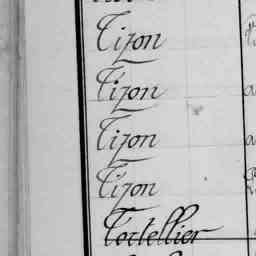 Tizon
Tizon
Tizon
Tizon
Tortellier